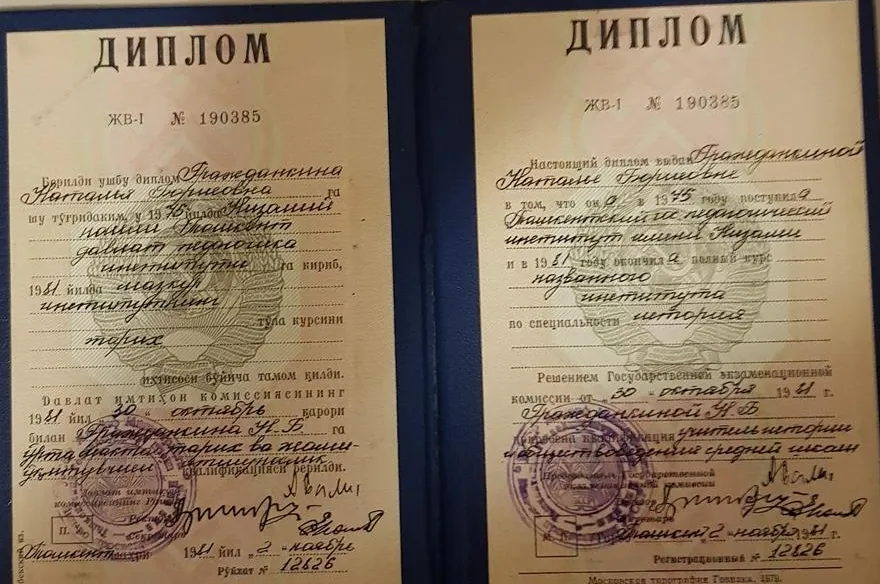 ДИПЛОМ
ЖВ-I № 190385
Берилди ушбу диплом Гражданкина
Наталья Борисовна га
шу тўғридаким, у 1975 йилда Низомий
номли Тошкент
давлат педагогика
институти га кириб,
1981 йилда мазкур
институтнинг
тўла курсини
тарих
ихтисоси бўйича тамом қилди.
Давлат имтиҳон комиссиясининг
1981 йил „30“ октябрь қарори
билан Гражданкина Н.Б. га
ўрта мактаб тарих ва жамият-
шунослик
ўқитувчиси квалификацияси берилди.
Давлат имтиҳон
комиссиясининг
Ректор
Секретарь
П.
Тошкент шаҳри 1981 йил „2“ ноябрь
Рўйхат № 12826
ДИПЛОМ
ЖВ-I № 190385
Настоящий диплом выдан Гражданкиной
Наталье Борисовне
в том, что она в 1975 году поступила
Ташкентский гос. педагогический
институт имени Низами
и в 1981 году окончила полный курс
названного
института
по специальности история
Решением Государственной экзаменационной
комиссии от „30“ октября 1981 г.
Гражданкиной Н.Б.
присвоена квалификация учитель истории
и обществоведения средней школы
Председатель Государственной
экзаменационной комиссии
Ректор
Секретарь
М.
Город Ташкент 2 „ноября 1981 г.
Регистрационный № 12826
Московская типография Гознака. 1979.